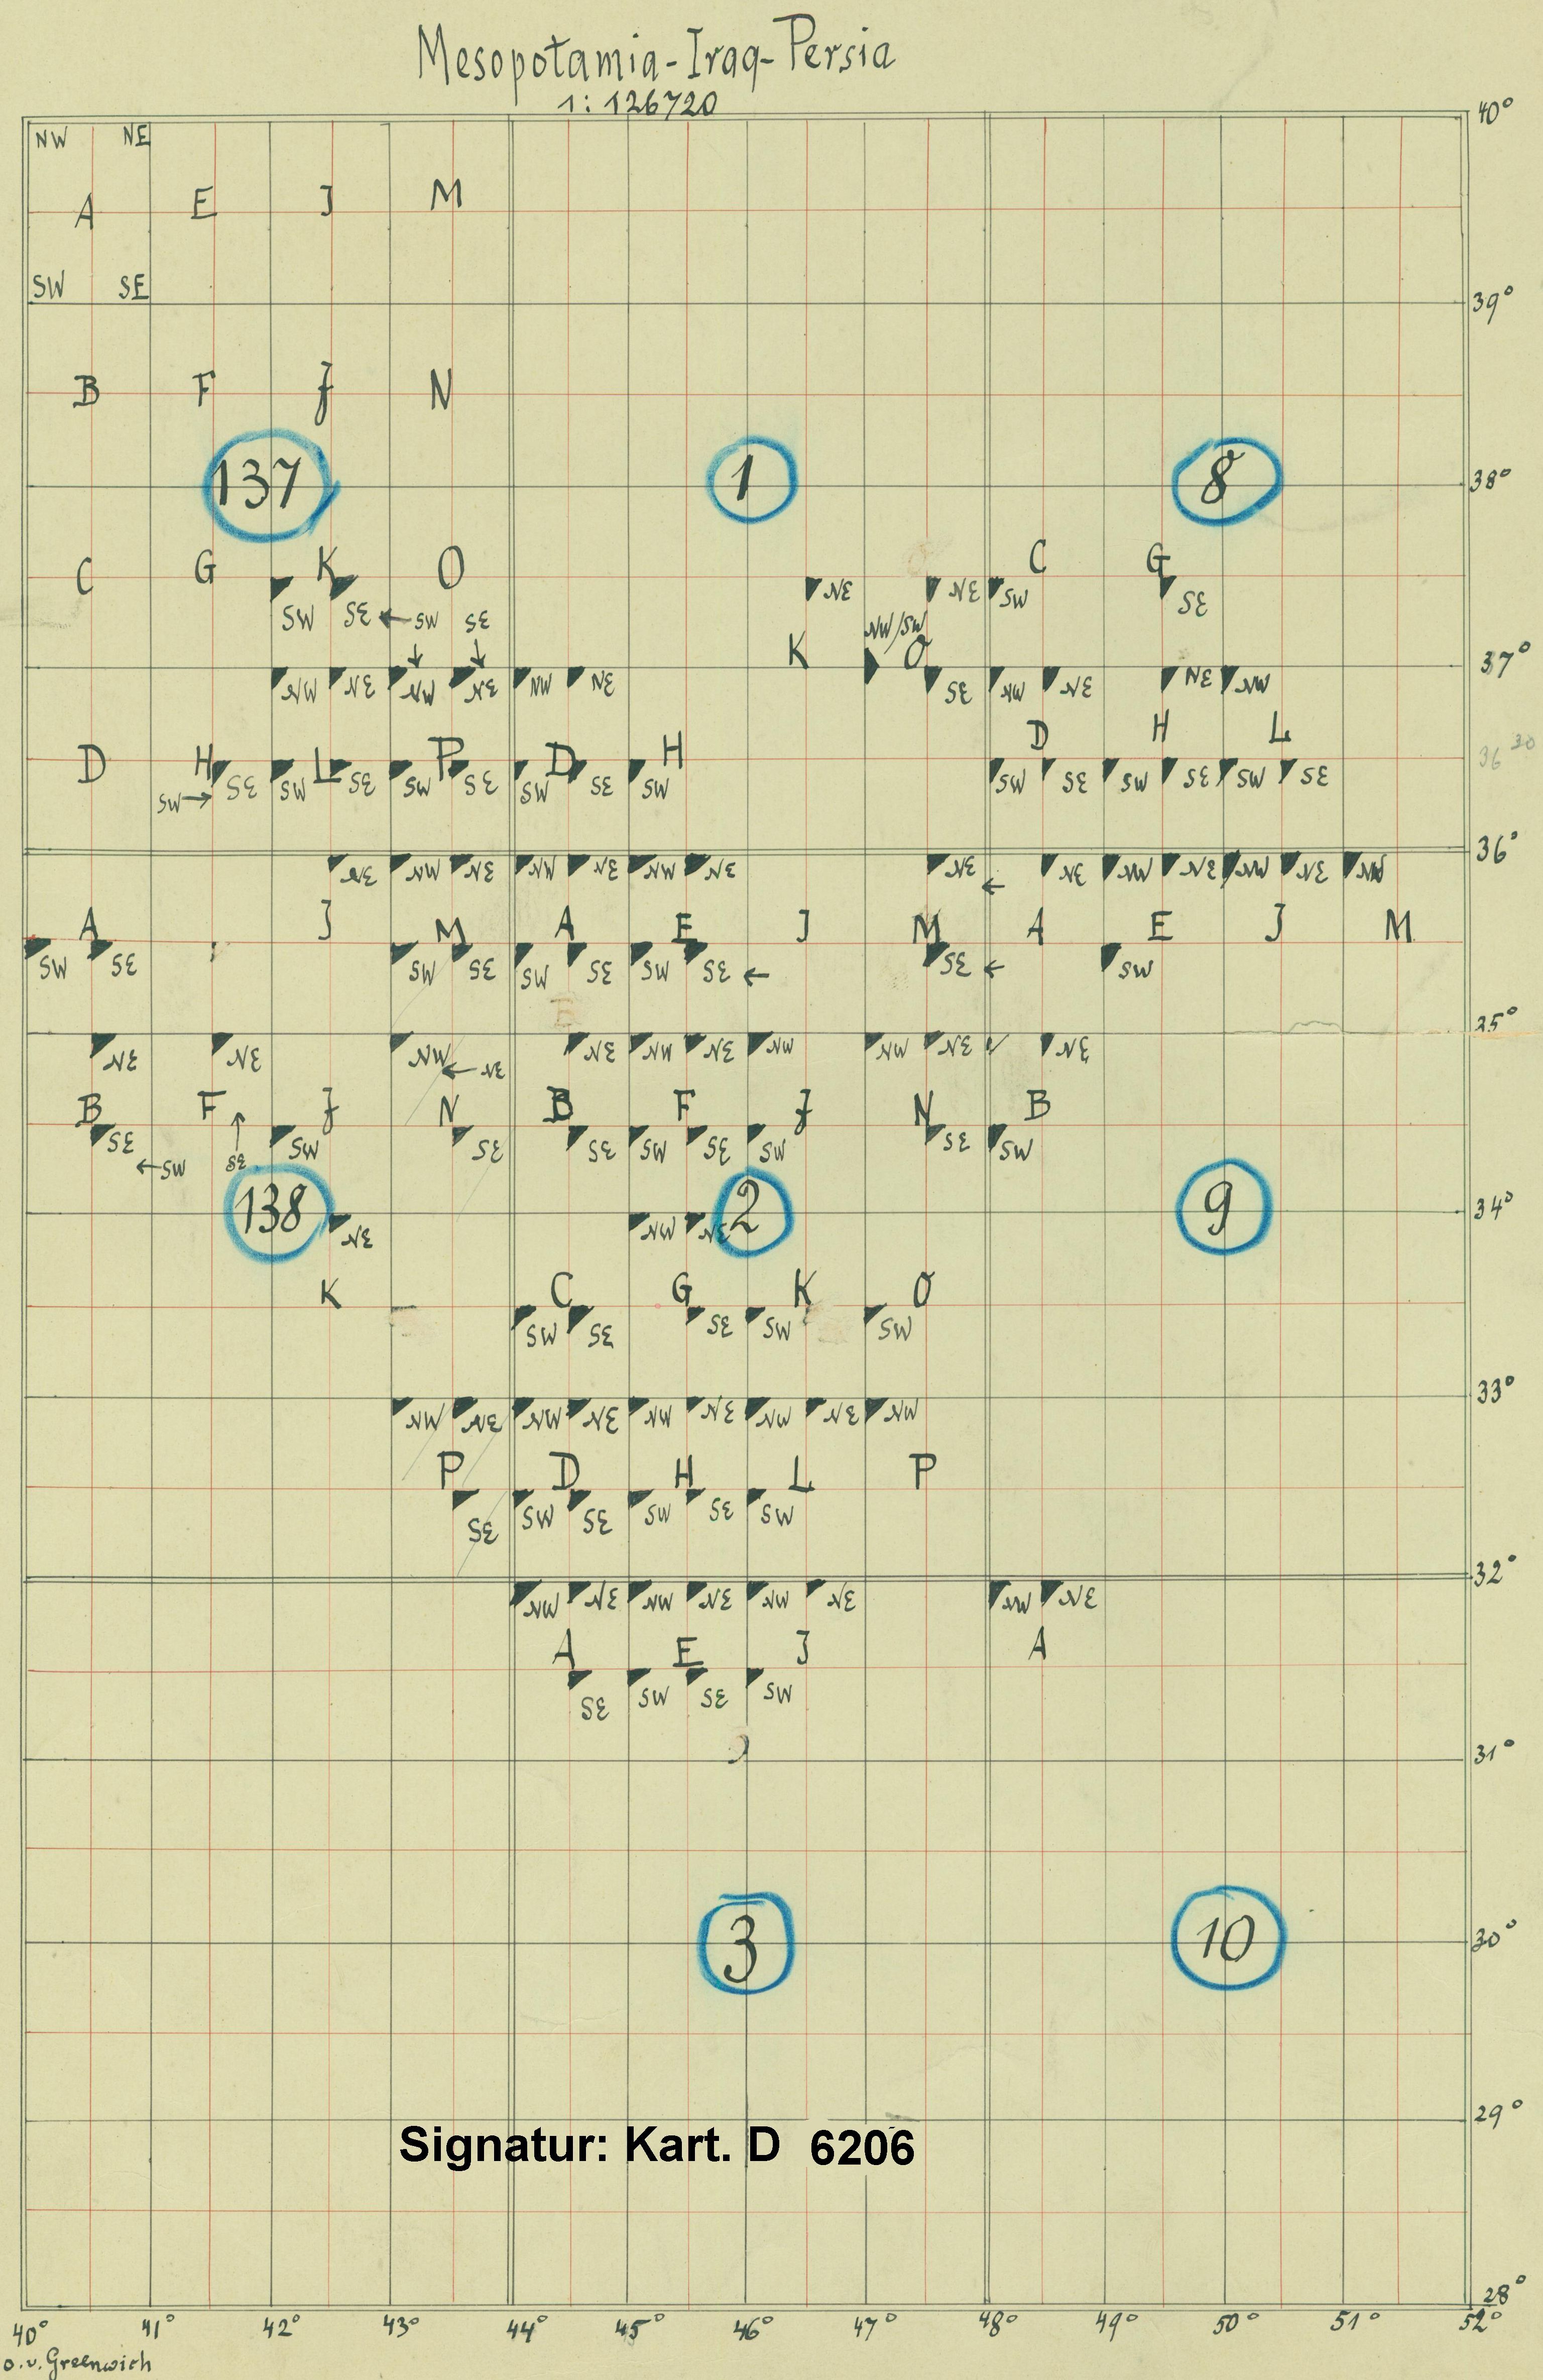 Mesopotamia-Iraq-Persia
1:126720
40°
NW NE
A E J M
SW SE
39°
B F J N
137 1 8 38°
C G K O C G
NE NE SW SE
SW SE ← SW SE
NW/SW
K O 37°
NW NE NW NE NW NE SE NW NE NE NW
D H L
D H L P D H 36 30
SE SW SE SW SE SW SE SW SW SE SW SE SW SE
SW →
36°
NE NW NE NW NE NW NE NE ← NE NW NE NW NE NW
A J M A E J M A E J M
SW SE SW SE SW SE SW SE ← SE ← SW
35°
NE NE NW ← NE NE NW NE NW NW NE NE
B F J N B F J N B
SE ← SW SE SW SE SE SW SE SW SE SW
138 2 9 34°
NE NW NE
K C G K O
SW SE SE SW SW
33°
NW NE NW NE NW NE NW NE NW
P D H L P
SE SW SE SW SE SW
32°
NW NE NW NE NW NE NW NE
A E J A
SE SW SE SW
31°
3 10 30°
29°
Signatur: Kart. D 6206
28°
40° 41° 42° 43° 44° 45° 46° 47° 48° 49° 50° 51° 52°
o.v. Greenwich